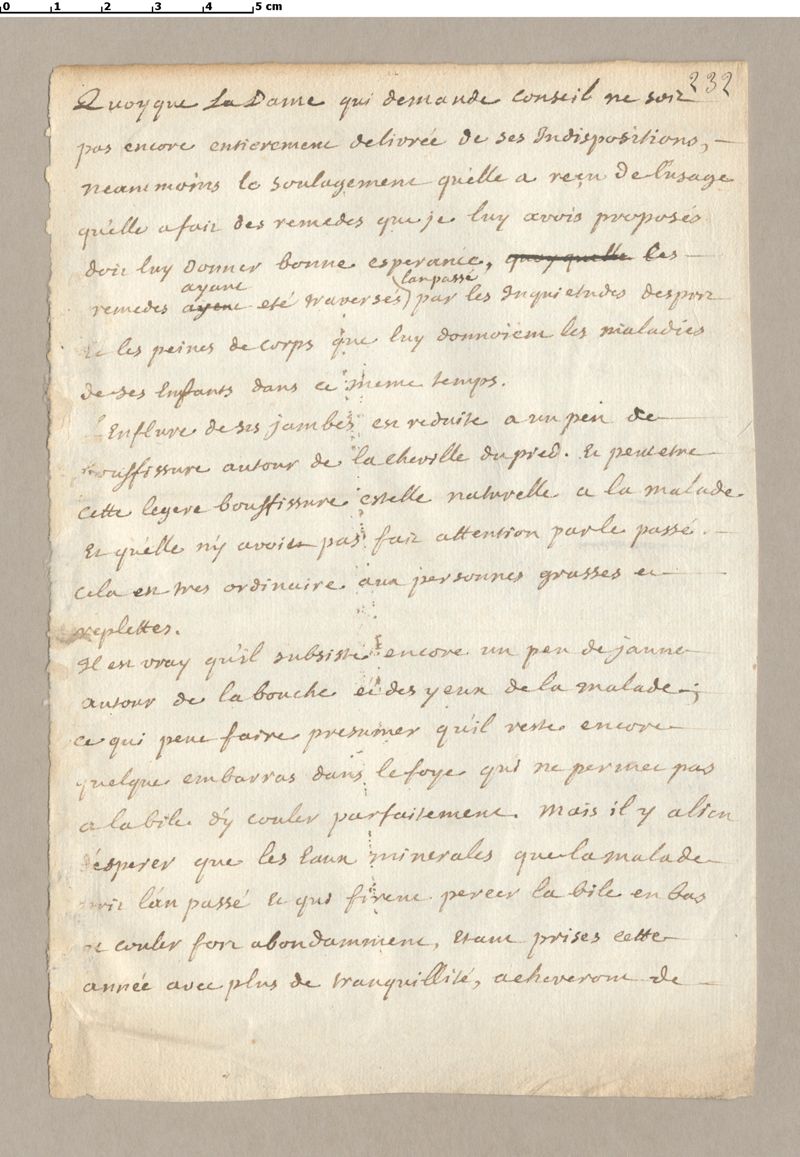 0 1 2 3 4 5 cm
232
Quoyque La Dame qui demande conseil ne soit
pas encore entierement delivrée de ses Indispositions,
neammoins le soulagement quelle a reçu de l'usage
qu'elle a fait des remedes que je luy avois proposés
doit luy donner bonne esperance, quoy quelle les
ayant lan passé
remedes ayent eté traversés par les Inquietudes desprit
et les peines de corps que luy donnoient les maladies
de ses Enfants dans ce meme temps.
l'Enflure de ses jambes est reduite a un peu de
bouffissure autour de la cheville du pied. Et peut etre
cette legere bouffissure estelle naturelle a la malade.
Et qu'elle n'y avoit pas fait attention par le passé.
Cela est tres ordinaire aux personnes grasses et
replettes.
Il est vray qu'il subsiste encore un peu de jaune
autour de la bouche et des yeux de la malade;
ce qui peut faire presumer qu'il reste encore
quelque embarras dans le foye qui ne permet pas
a la bile d'y couler parfaitement. Mais il y a lieu
d'esperer que les Eaux minerales que la malade
prit l'an passé et qui firent percer la bile en bas
et couler fort abondamment, etant prises cette
année avec plus de tranquillité, acheveront de